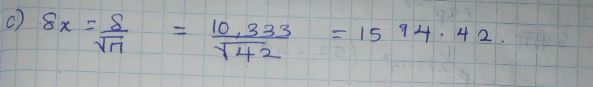 c) 8x = 8/√n = 10,333/√42 = 1594.42.